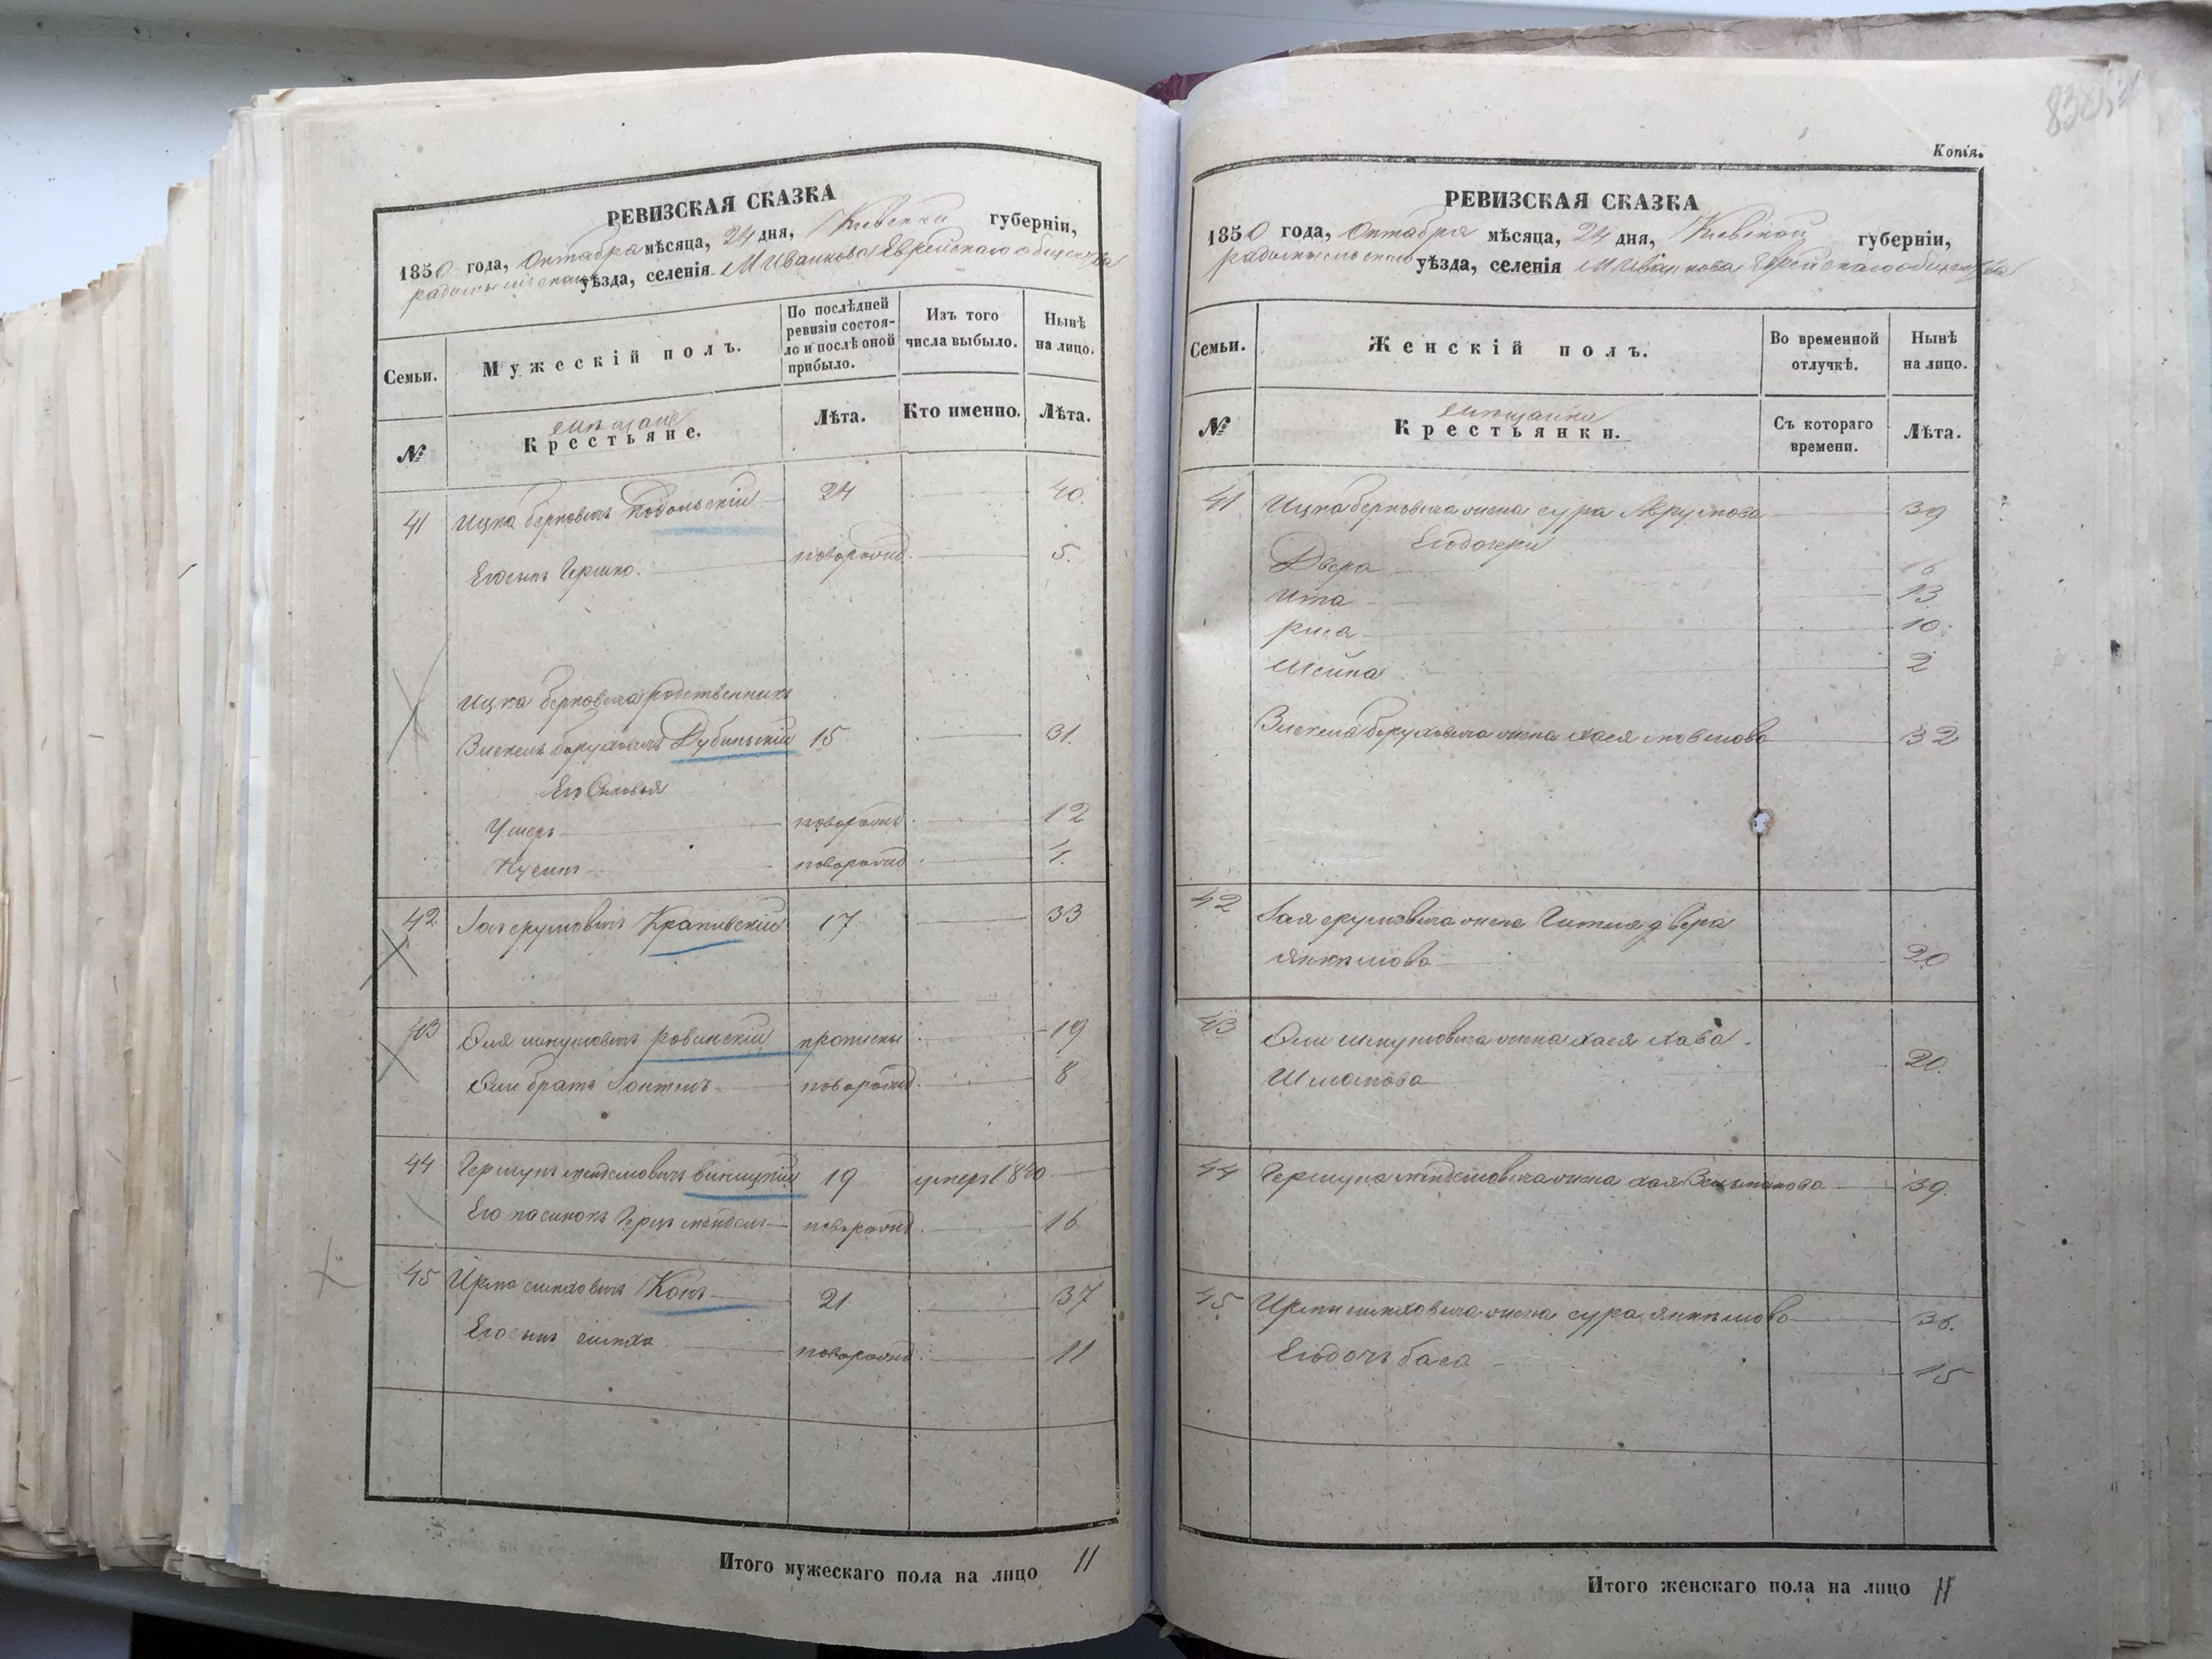 РЕВИЗСКАЯ СКАЗКА
1850 года, Октября мѣсяца, 24 дня, Киевской губерніи,
радомысльскаго уѣзда, селенія М Иванкова Еврейскаго общества
Семьи. Мужескій полъ. По послѣдней ревизіи состояло и послѣ оной прибыло. Изъ того числа выбыло. Нынѣ на лицо.
№ мѣщане Крестьяне. Лѣта. Кто именно. Лѣта.
41 Ицка берковичъ Подольскій 24 40.
Его сынъ Гершко. новорожд. 5.
Ицка берковича родственникъ
боруховичъ Дубинскій 15 31.
Его Сыновья
Ушеръ новорожд. 12
Нусинъ новорожд. 4.
42 Крапивскій 17 33
43 ровинскій 19
братъ новорожд. 8
44 Гершунъ мендемовичъ винницкій 19 умеръ 1840
Его пасинокъ Герць мендель новорожд. 16
45 Конъ 21 37
Его сынъ симха новорожд. 11
Итого мужескаго пола на лицо 11
Копія.
РЕВИЗСКАЯ СКАЗКА
1850 года, Октября мѣсяца, 24 дня, Киевской губерніи,
радомысльскаго уѣзда, селенія М Иванкова Еврейскаго общества
Семьи. Женскій полъ. Во временной отлучкѣ. Нынѣ на лицо.
№ мѣщанки Крестьянки. Съ котораго времени. Лѣта.
41 Ицка берковича жена сура Абрумова 39
Его дочери
Двера 16
Ита 13
риса 10.
Шейна 2
боруховича жена хася 32
42 жена Гитля двера
янкелова 20
43 жена хася хава.
Шмаиова 20.
44 Гершуна мендемовича жена хая 39.
45 симховича жена сура янкелова 36.
Его дочь бася 15
Итого женскаго пола на лицо 11